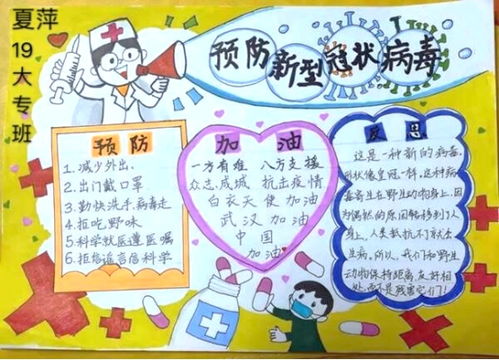 夏萍
19
大
专
班
预防新型冠状病毒
预防
1.减少外出.
2.出门戴口罩
3.勤快洗手病毒走
4.拒吃野味
5.科学就医遵医嘱
6.拒信谣言信科学
加油
一方有难 八方支援
众志成城 抗击疫情
白衣天使加油
武汉加油
中国
加油
反思
这是一种新的病毒,
形状像皇冠一样,这种病
毒寄生在野生动物身上,因
为偶然的原因转移到了人
身上,人类抵抗不了就会
生病。所以,我们和野生
动物保持距离,友好相
处,而不是残害它们!